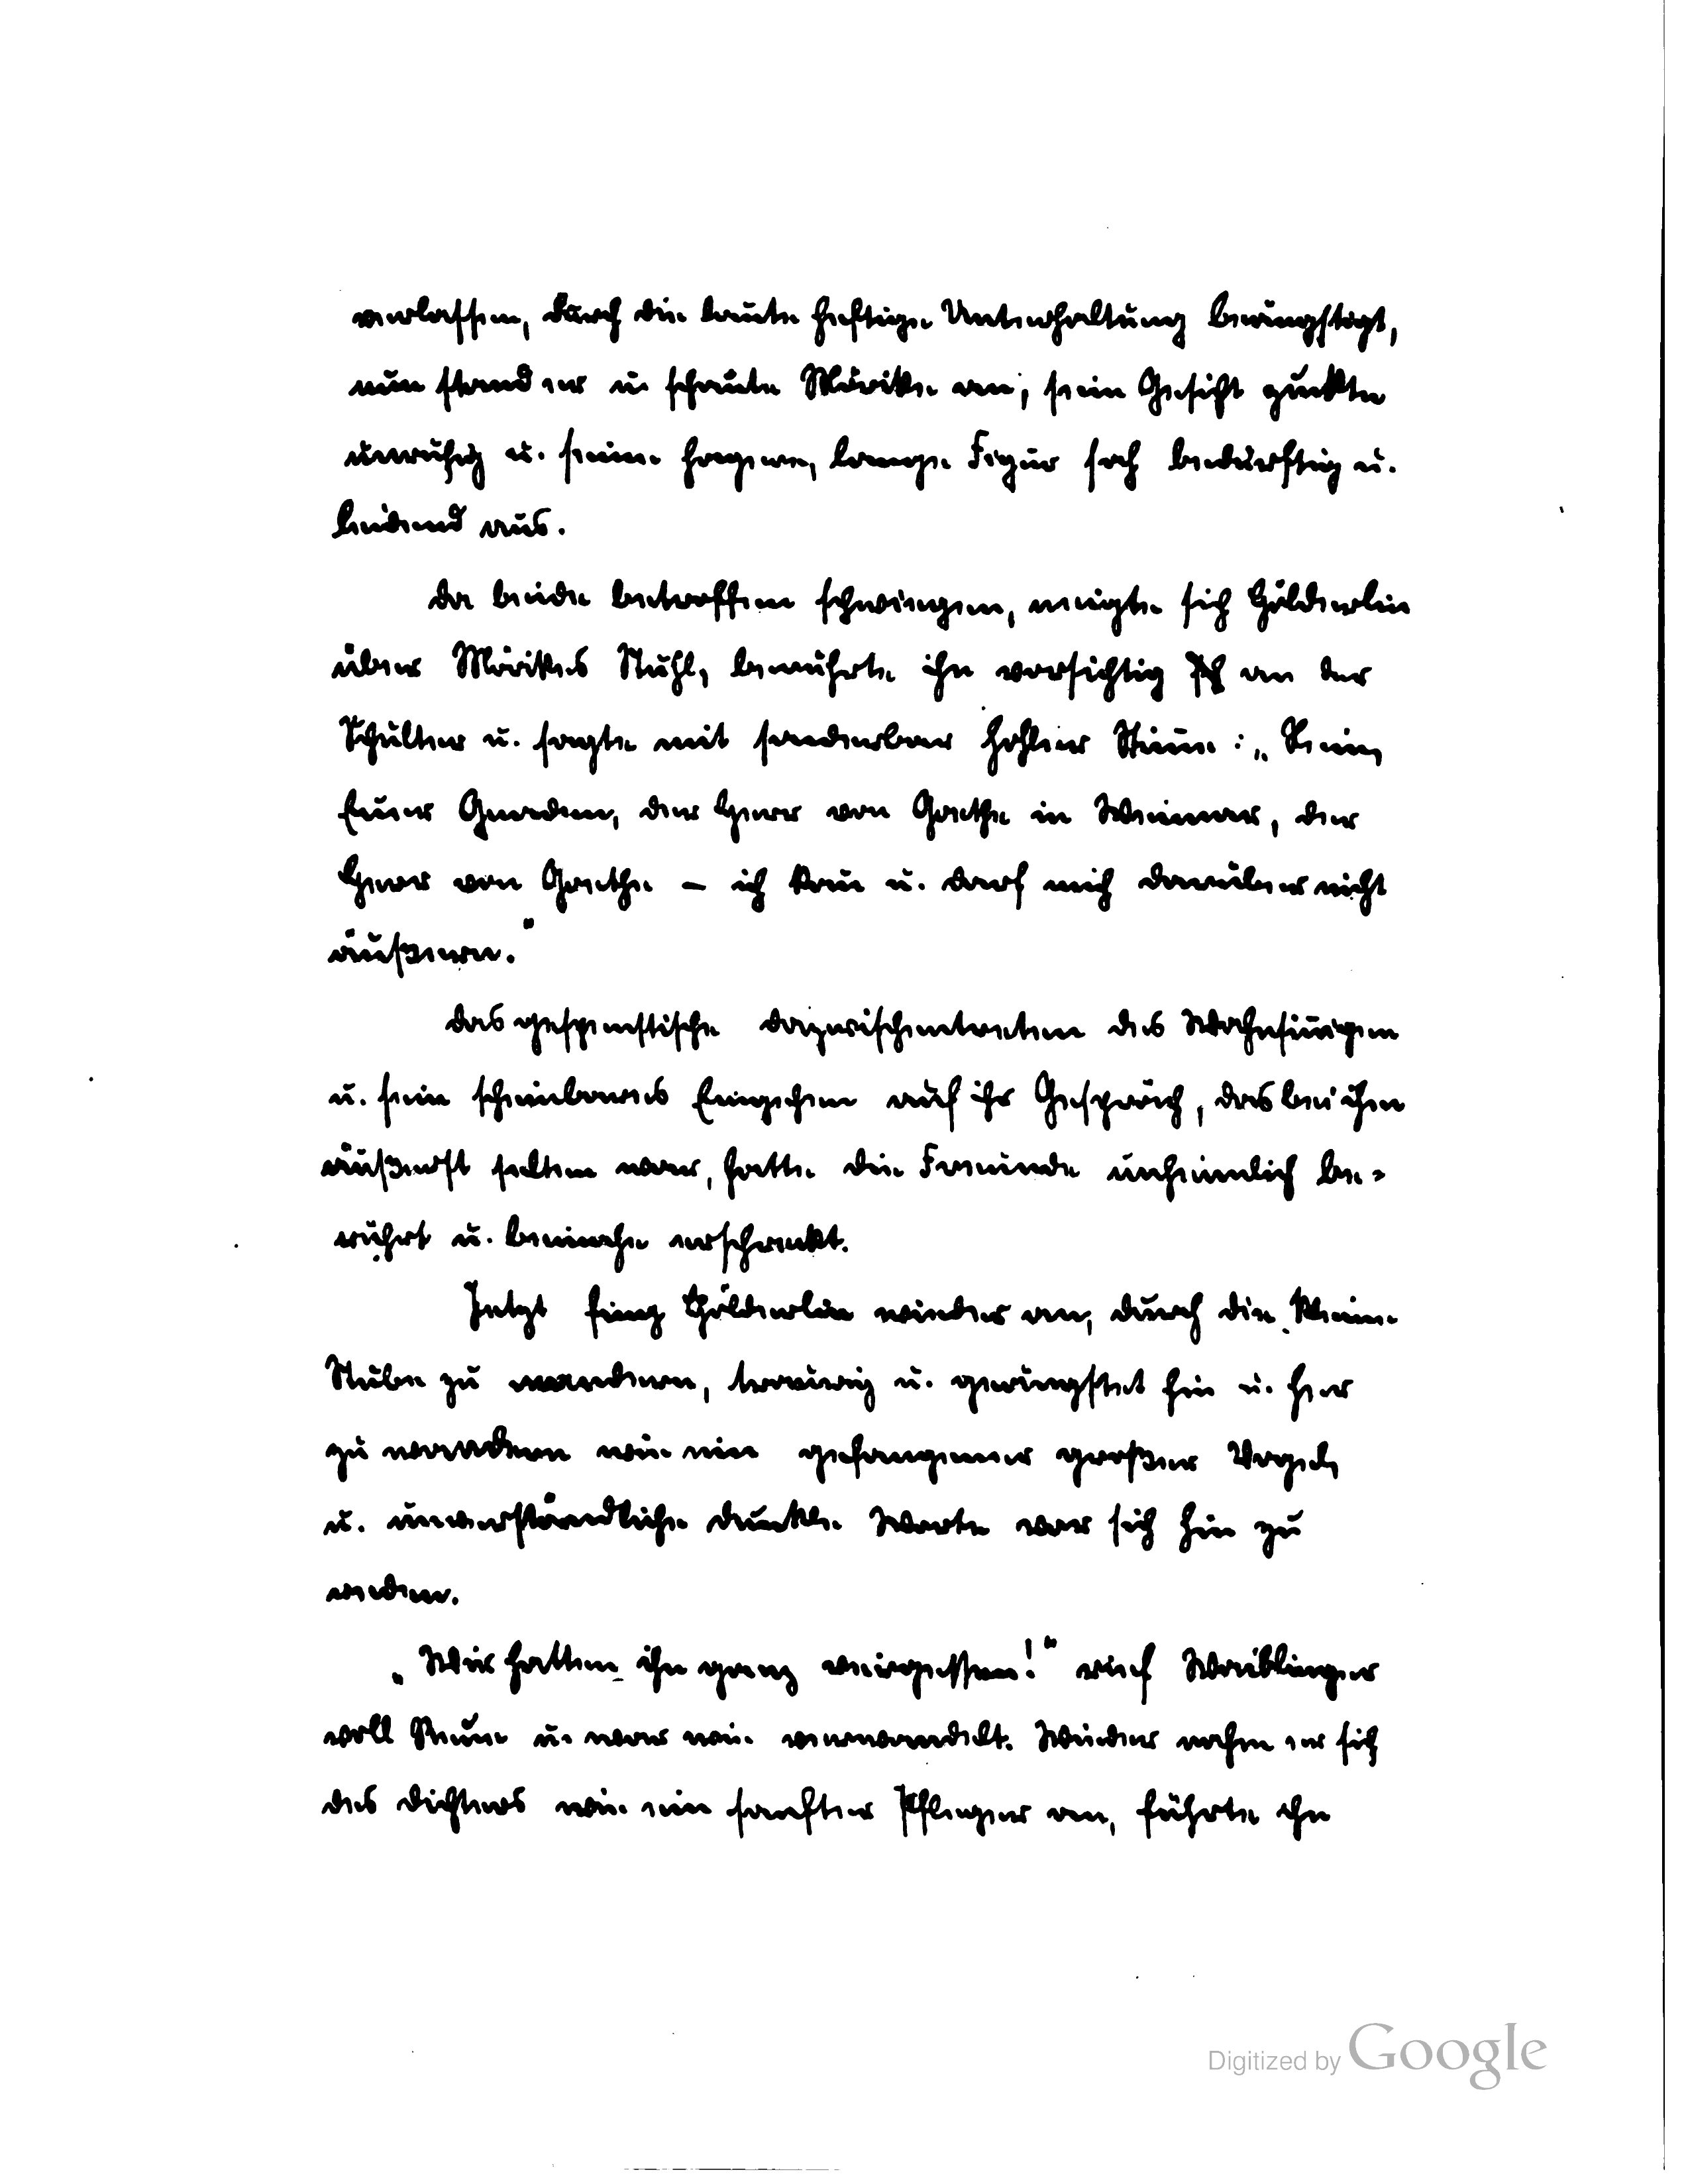 verlassen, durch die laute heftige Unterhaltung beängstigt,
nun stand er u. schaute Mörike an; sein Gesicht zuckte
unruhig u. seine hagere, lange Figur sah bedürftig u.
leidend aus.
Da beide betroffen schwiegen, neigte sich Hölderlin
über Mörikes Stuhl, berührte ihn vorsichtig an der
Schulter u. sagte mit sonderbar hohler Stim̄e: „Nein,
Euer Gnaden, der Herr von Goethe in Weimar, der
Herr von Goethe – ich kan̄ u. darf mich darüber nicht
äußern."
Das gespenstische Dazwischentreten des Wahnsin̄igen
u. sein scheinbares Eingehen auf ihr Gespräch, das bei ihm
äußerst selten war, hatte die Freunde unheimlich be-
rührt u. beinahe erschreckt.
Jetzt fing Hölderlin wieder an, durch die kleine
Stube zu wandern, traurig u. geängstet hin u. her
zu wandern wie ein gefangener großer Vogel,
u. unverständliche dunkle Worte vor sich hin zu
reden.
„Wir hatten ihn ganz vergessen!" rief Waiblinger
voll Reue u. war wie verwandelt. Wieder nahm er sich
des Dichters wie ein sanfter Pfleger an, führte ihn
Digitized by Google